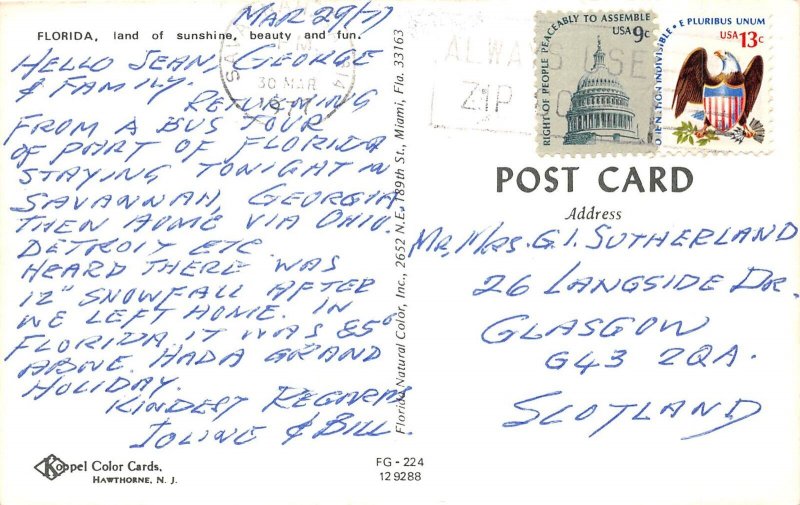 MAR 29/77
FLORIDA, land of sunshine, beauty and fun.
HELLO JEAN, GEORGE
& FAMILY.
RETURNING
FROM A BUS TOUR
OF PART OF FLORIDA
STAYING TONIGHT IN
SAVANNAH, GEORGIA
THEN HOME VIA OHIO.
DETROIT ETC.
HEARD THERE WAS
12" SNOWFALL AFTER
WE LEFT HOME. IN
FLORIDA IT WAS 85°
ABOVE. HAD A GRAND
HOLIDAY.
KINDEST REGARDS
& BILL.
Koppel Color Cards,
HAWTHORNE, N. J.
FG - 224
129288
Florida Natural Color, Inc., 2652 N.E. 189th St., Miami, Fla. 33163
30 MAR
ALWAYS USE
ZIP
RIGHT OF PEOPLE PEACEABLY TO ASSEMBLE
USA 9c
ONE NATION INDIVISIBLE • E PLURIBUS UNUM
USA 13c
POST CARD
Address
MR, MRS. G. I. SUTHERLAND
26 LANGSIDE DR.
GLASGOW
G43 2QA.
SCOTLAND